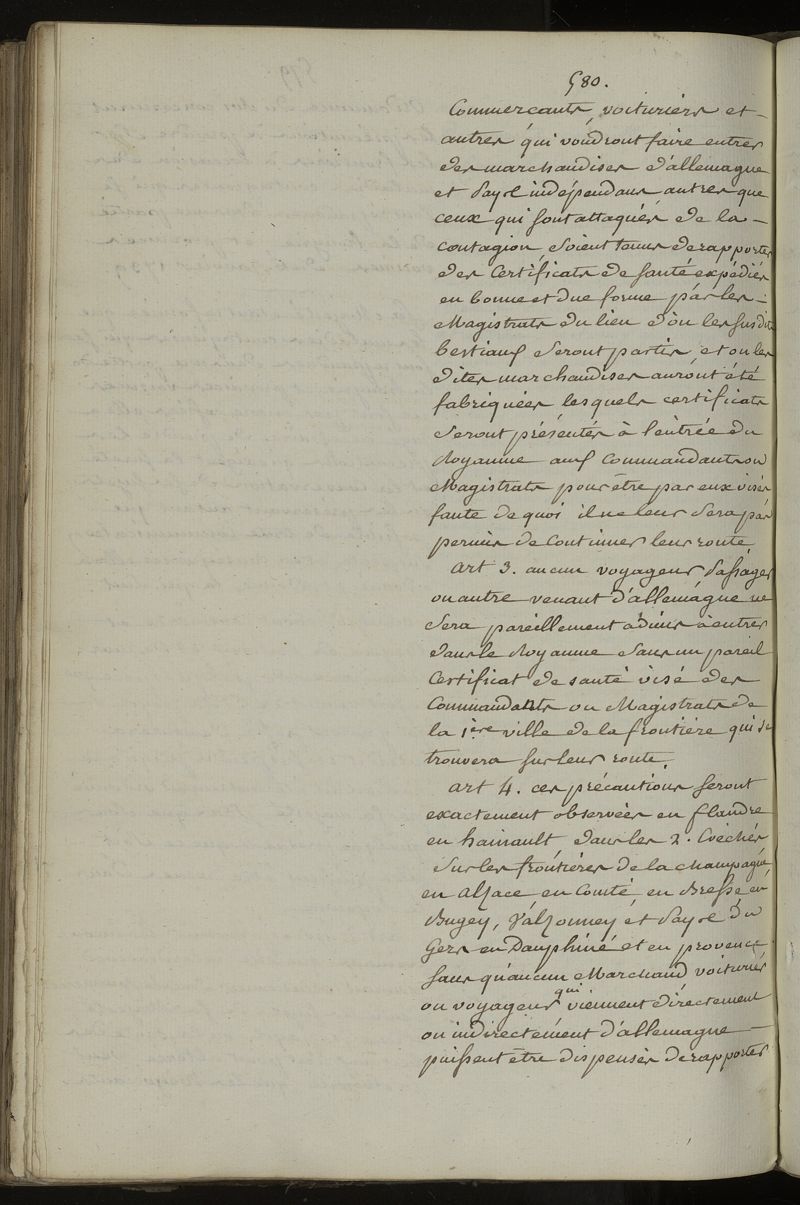 580.
Commercants, voituriers et
autres qui voudront faire entrer
des marchandises d'allemagne
et Pays indépendans, autres que
ceux qui sont attaqués de la
contagion, soient tenus de rapporter
des Certificats de santé expédiés
en bonne et due forme par les
Magistrats du lieu d'où les susdits
bestiaux seront partis, et ou les
dites marchandises auront été
fabriquées lesquels certificats
seront présentés à l'entrée du
Royaume aux Commandants ou
Magistrats pour être par eux visés
faute de quoi il ne leur sera pas
permis de continuer leur route
art 3. aucun voyageur, Passager
ou autre venant d'allemagne ne
sera pareillement admis à entrer
dans le Royaume sans un pareil
Certificat de santé visé des
Commandants ou Magistrats de
la 1ère ville de la frontière qui se
trouvera sur leur route.
art 4. ces précautions seront
exactement observées en flandre
en hainault, dans les 2. Evechés
Sur les frontières de la champagne
en alsace en Comté, en Bresse en
Bugey, Valromey et Pays de
Gex en Dauphiné et en provence
sans qu'aucun Marchand voiturier
ou voyageur qui viennent directement
ou indirectement d'allemagne
puissent être dispensés de rapporter